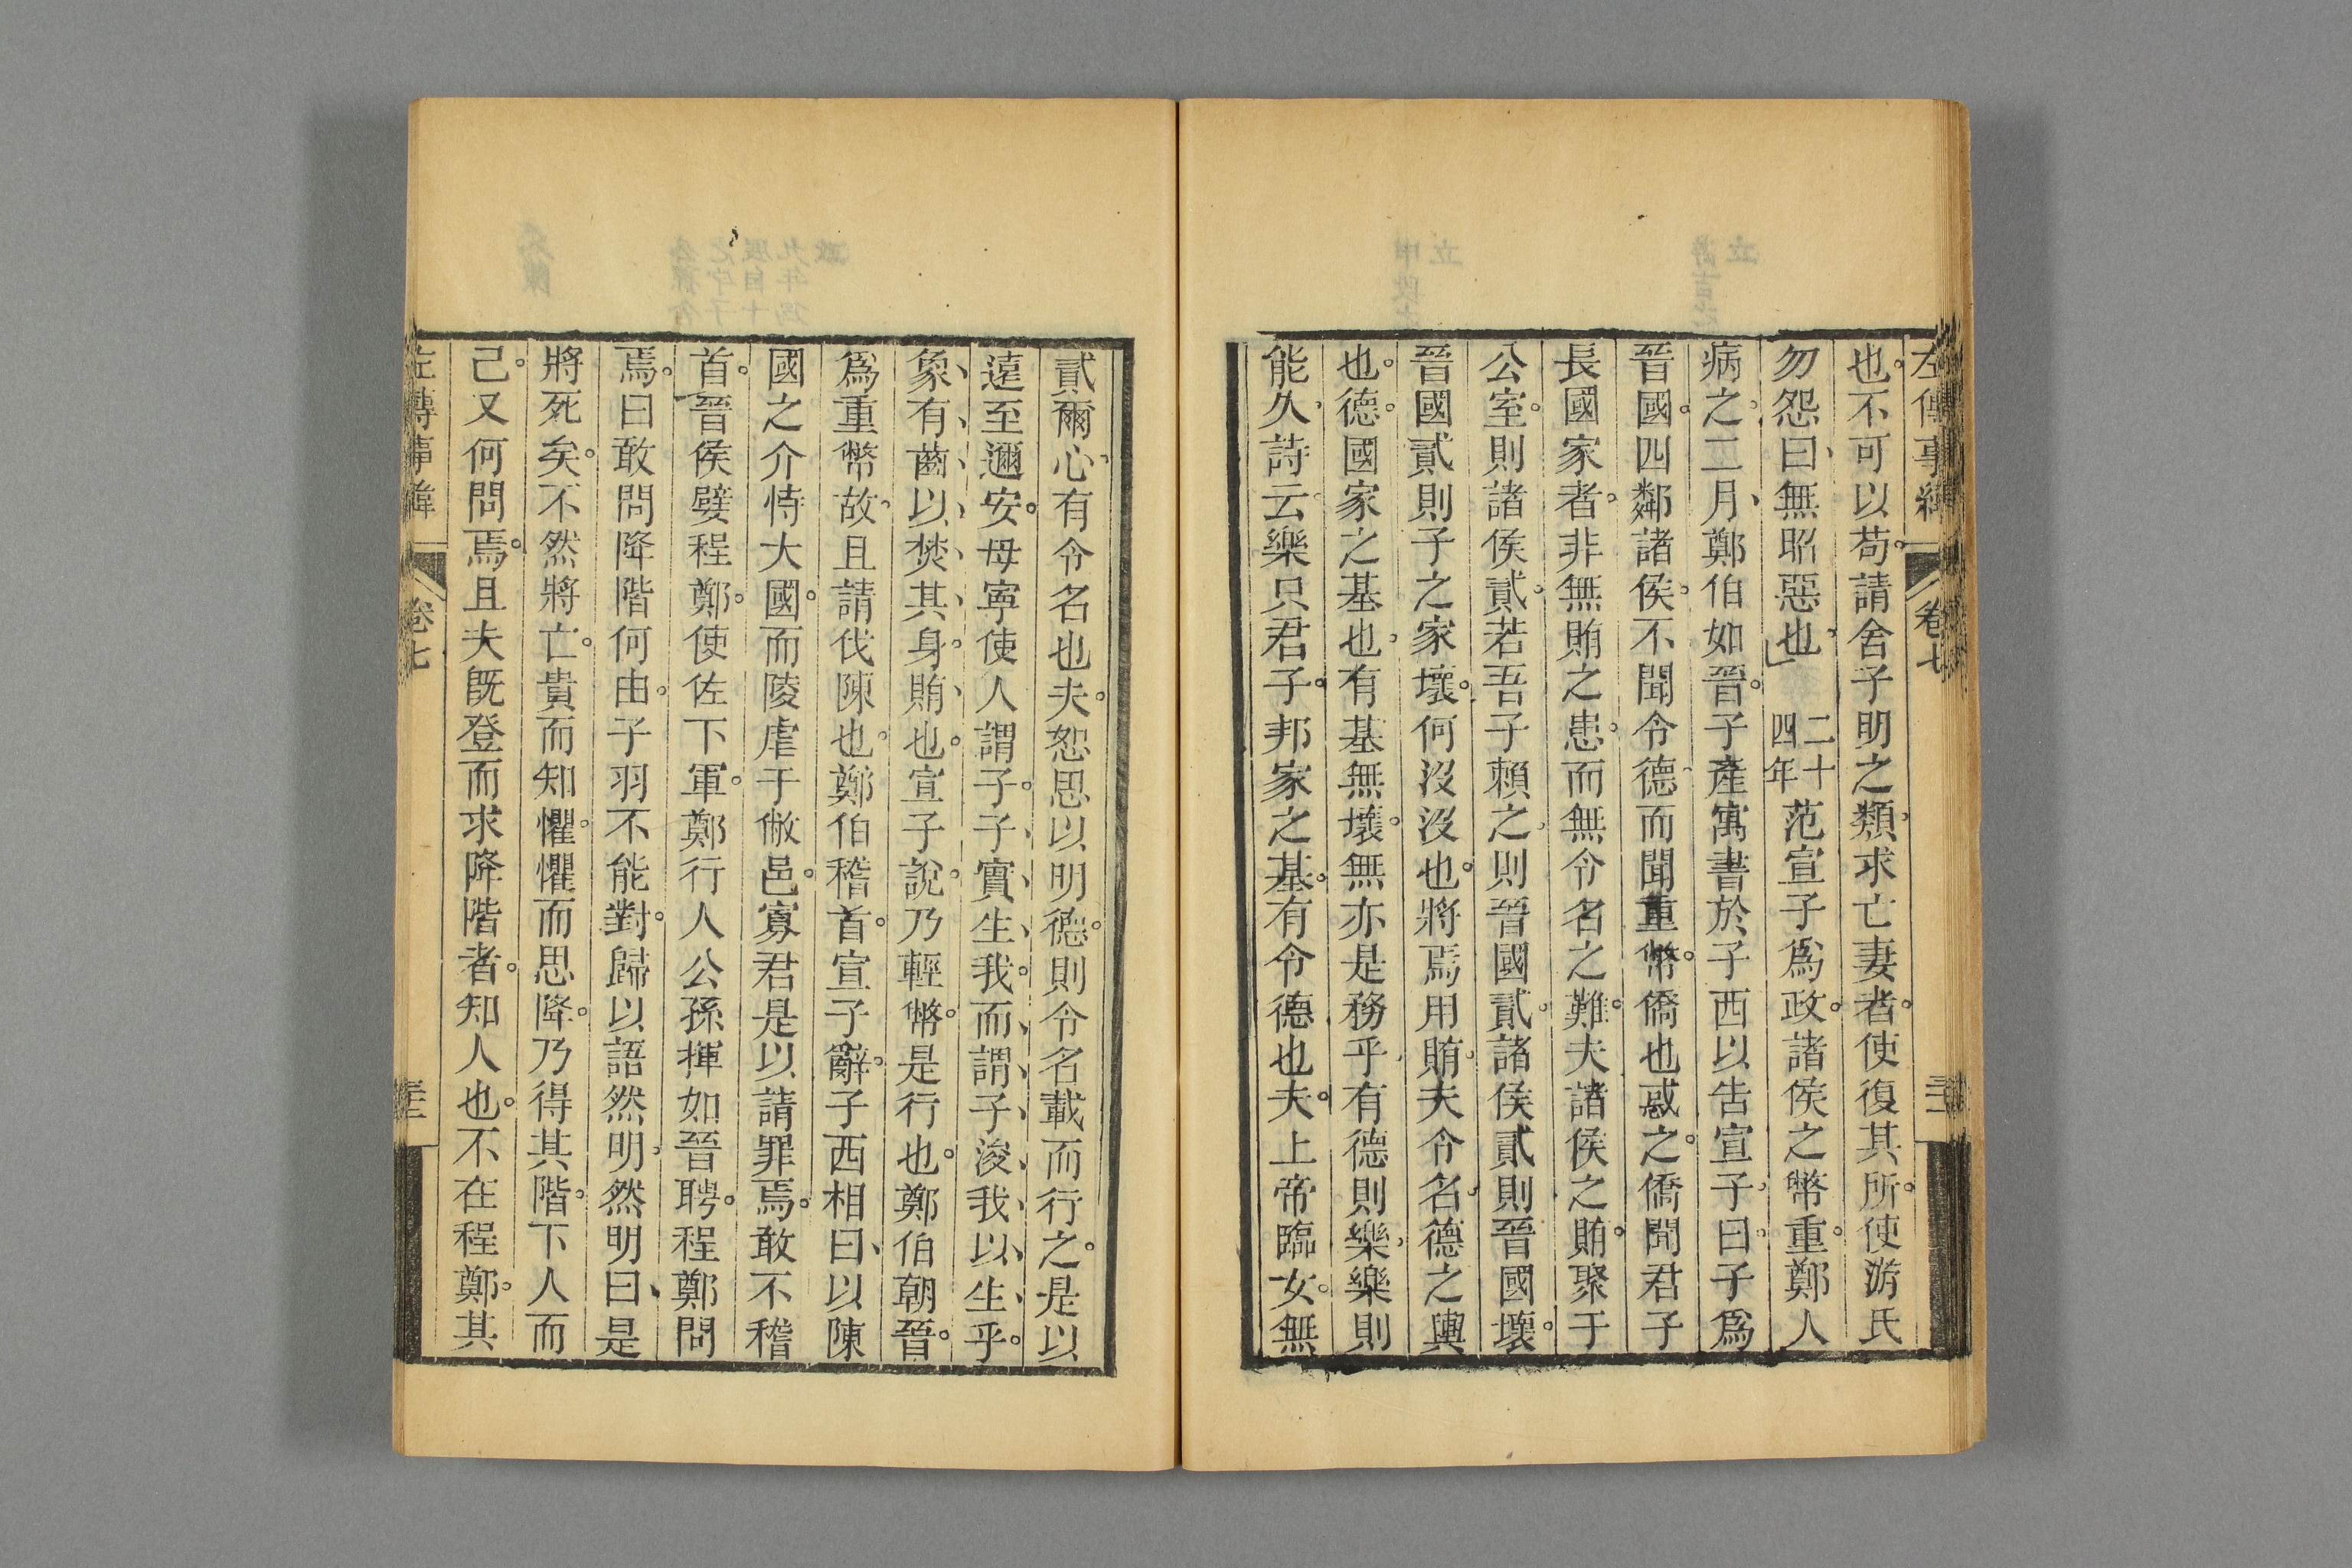 左傳事緯 卷七
也不可以苟請舍子明之類求亡妻者使復其所使游氏
勿怨曰無昭惡也 二十四年 范宣子爲政諸侯之幣重鄭人
病之二月鄭伯如晉子產寓書於子西以告宣子曰子爲
晉國四鄰諸侯不聞令德而聞重幣僑也惑之僑聞君子
長國家者非無賄之患而無令名之難夫諸侯之賄聚于
公室則諸侯貳若吾子賴之則晉國貳諸侯貳則晉國壞
晉國貳則子之家壞何沒沒也將焉用賄夫令名德之輿
也德國家之基也有基無壞無亦是務乎有德則樂樂則
能久詩云樂只君子邦家之基有令德也夫上帝臨女無
貳爾心有令名也夫恕思以明德則令名載而行之是以
遠至邇安毋寧使人謂子子實生我而謂子浚我以生乎
象有齒以焚其身賄也宣子說乃輕幣是行也鄭伯朝晉
爲重幣故且請伐陳也鄭伯稽首宣子辭子西相曰以陳
國之介恃大國而陵虐于敝邑寡君是以請罪焉敢不稽
首晉侯嬖程鄭使佐下軍鄭行人公孫揮如晉聘程鄭問
焉曰敢問降階何由子羽不能對歸以語然明然明曰是
將死矣不然將亡貴而知懼懼而思降乃得其階下人而
己又何問焉且夫既登而求降階者知人也不在程鄭其
左傳事緯 卷七